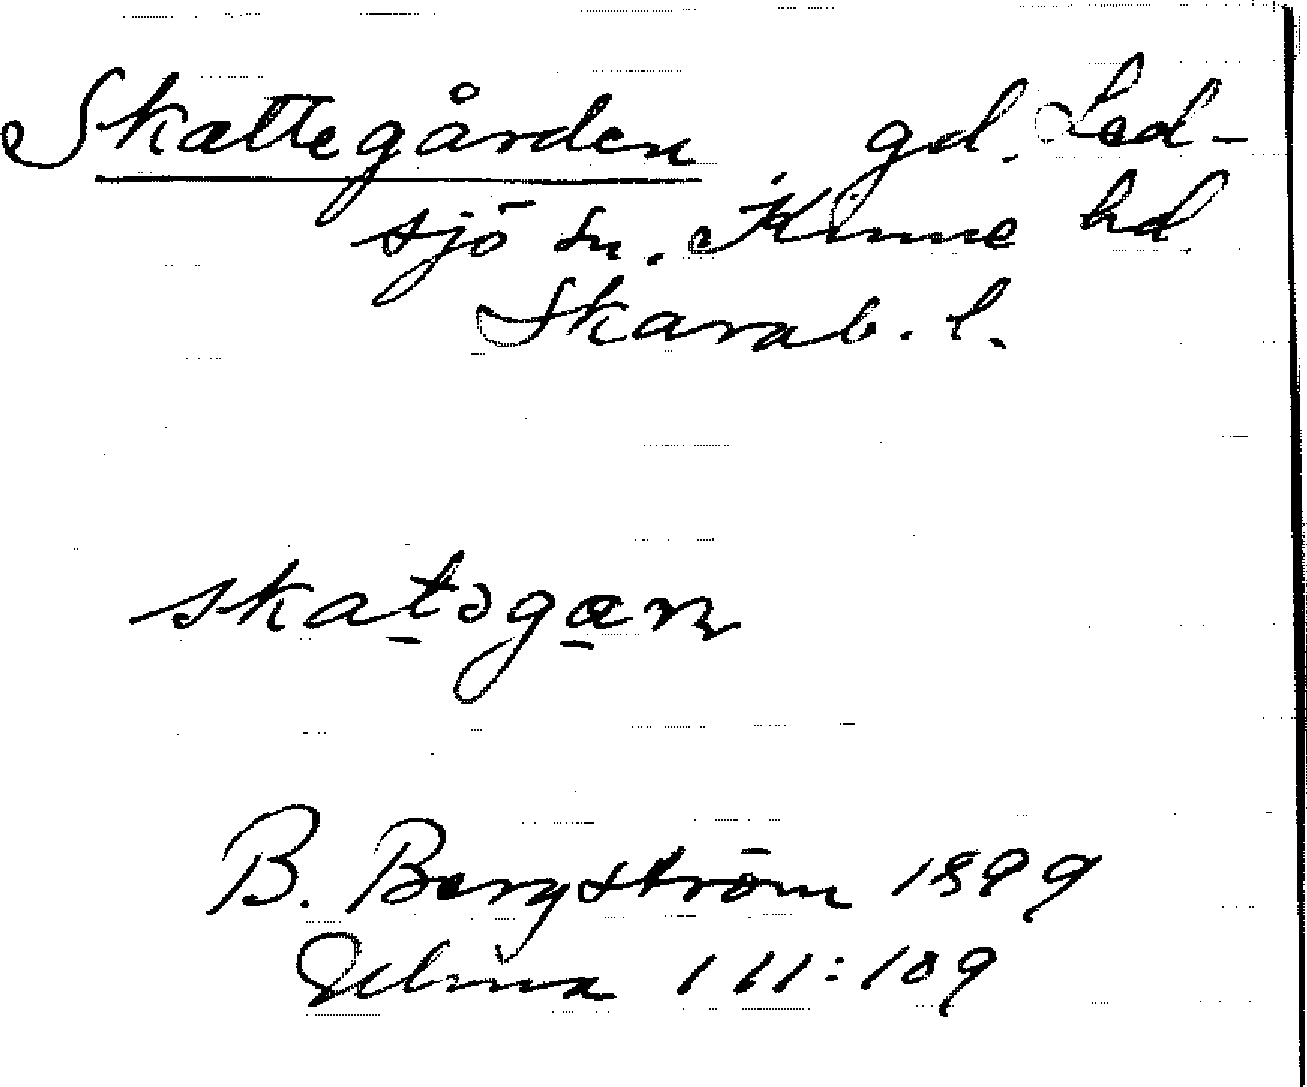 Skattegården gd. Led-
sjö sn. Kinne hd
Skarab. l.
skatogæn
B. Bergström 1899
III:109